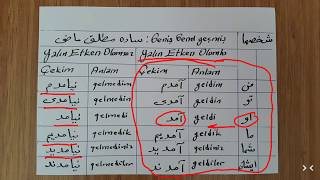 شخصها ساده مطلق ماضی : Geniş Genel geçmiş
Yalın Etken Olumsuz Yalın Etken Olumlu
Çekim Anlam Çekim Anlam
نیامدم gelmedim آمدم geldim من
نیامدی gelmedin آمدی geldin تو
نیامد gelmedi آمد geldi او
نیامدیم gelmedik آمدیم geldik ما
نیامدید gelmediniz آمدید geldiniz شما
نیامدند gelmediler آمدند geldiler